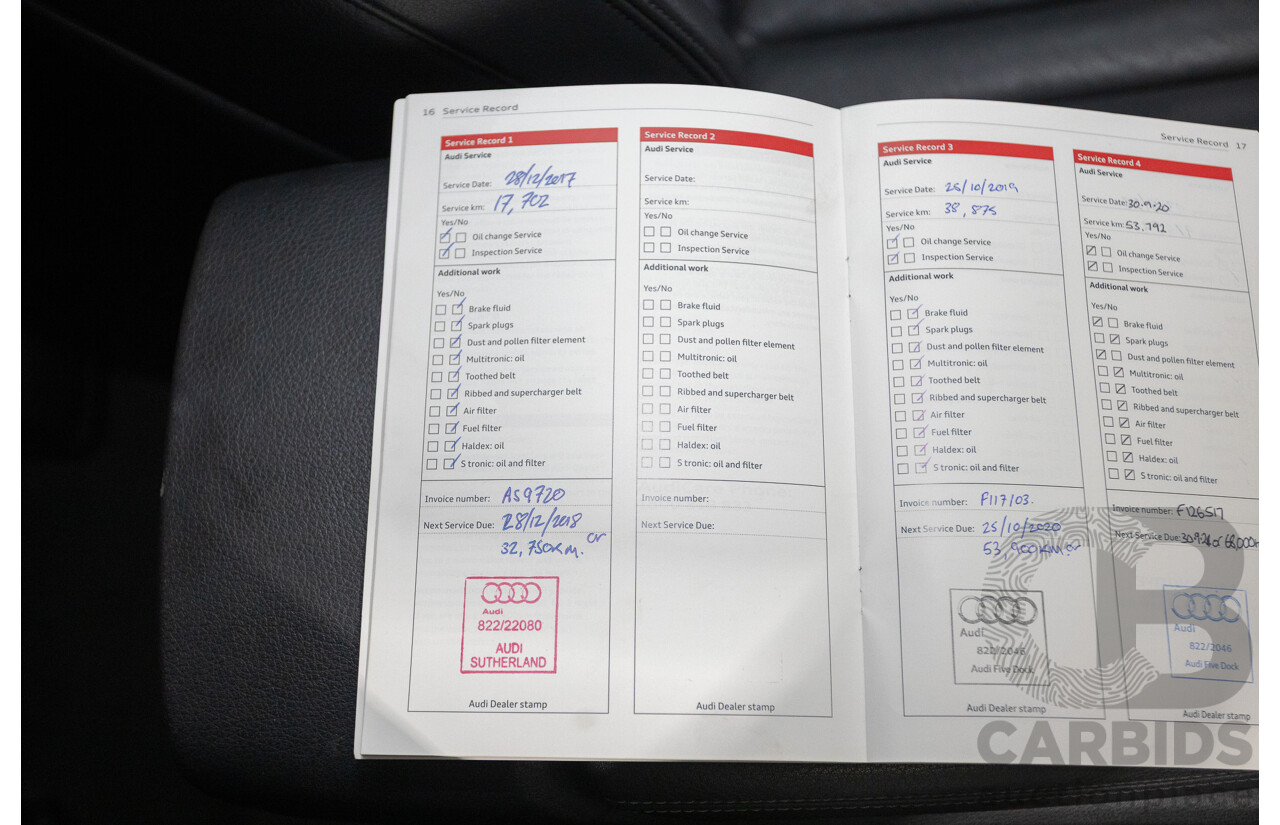 16 Service Record
Service Record 1
Audi Service
Service Date: 28/12/2017
Service km: 17,702
Yes/No
Oil change Service
Inspection Service
Additional work
Yes/No
Brake fluid
Spark plugs
Dust and pollen filter element
Multitronic: oil
Toothed belt
Ribbed and supercharger belt
Air filter
Fuel filter
Haldex: oil
S tronic: oil and filter
Invoice number: AS9720
Next Service Due: 28/12/2018
or
32,750km.
Audi
822/22080
AUDI
SUTHERLAND
Audi Dealer stamp
Service Record 2
Audi Service
Service Date:
Service km:
Yes/No
Oil change Service
Inspection Service
Additional work
Yes/No
Brake fluid
Spark plugs
Dust and pollen filter element
Multitronic: oil
Toothed belt
Ribbed and supercharger belt
Air filter
Fuel filter
Haldex: oil
S tronic: oil and filter
Invoice number:
Next Service Due:
Audi Dealer stamp
Service Record 17
Service Record 3
Audi Service
Service Date: 25/10/2019
Service km: 38,875
Yes/No
Oil change Service
Inspection Service
Additional work
Yes/No
Brake fluid
Spark plugs
Dust and pollen filter element
Multitronic: oil
Toothed belt
Ribbed and supercharger belt
Air filter
Fuel filter
Haldex: oil
S tronic: oil and filter
Invoice number: F117103.
Next Service Due: 25/10/2020
53,900km or
Audi
822/2046
Audi Five Dock
Audi Dealer stamp
Service Record 4
Audi Service
Service Date: 30.9.20
Service km: 53,792
Yes/No
Oil change Service
Inspection Service
Additional work
Yes/No
Brake fluid
Spark plugs
Dust and pollen filter element
Multitronic: oil
Toothed belt
Ribbed and supercharger belt
Air filter
Fuel filter
Haldex: oil
S tronic: oil and filter
Invoice number: F126517
Next Service Due: 30.9.21 or
Audi
822/2046
Audi Five Dock
Audi Dealer stamp
CB
CARBIDS